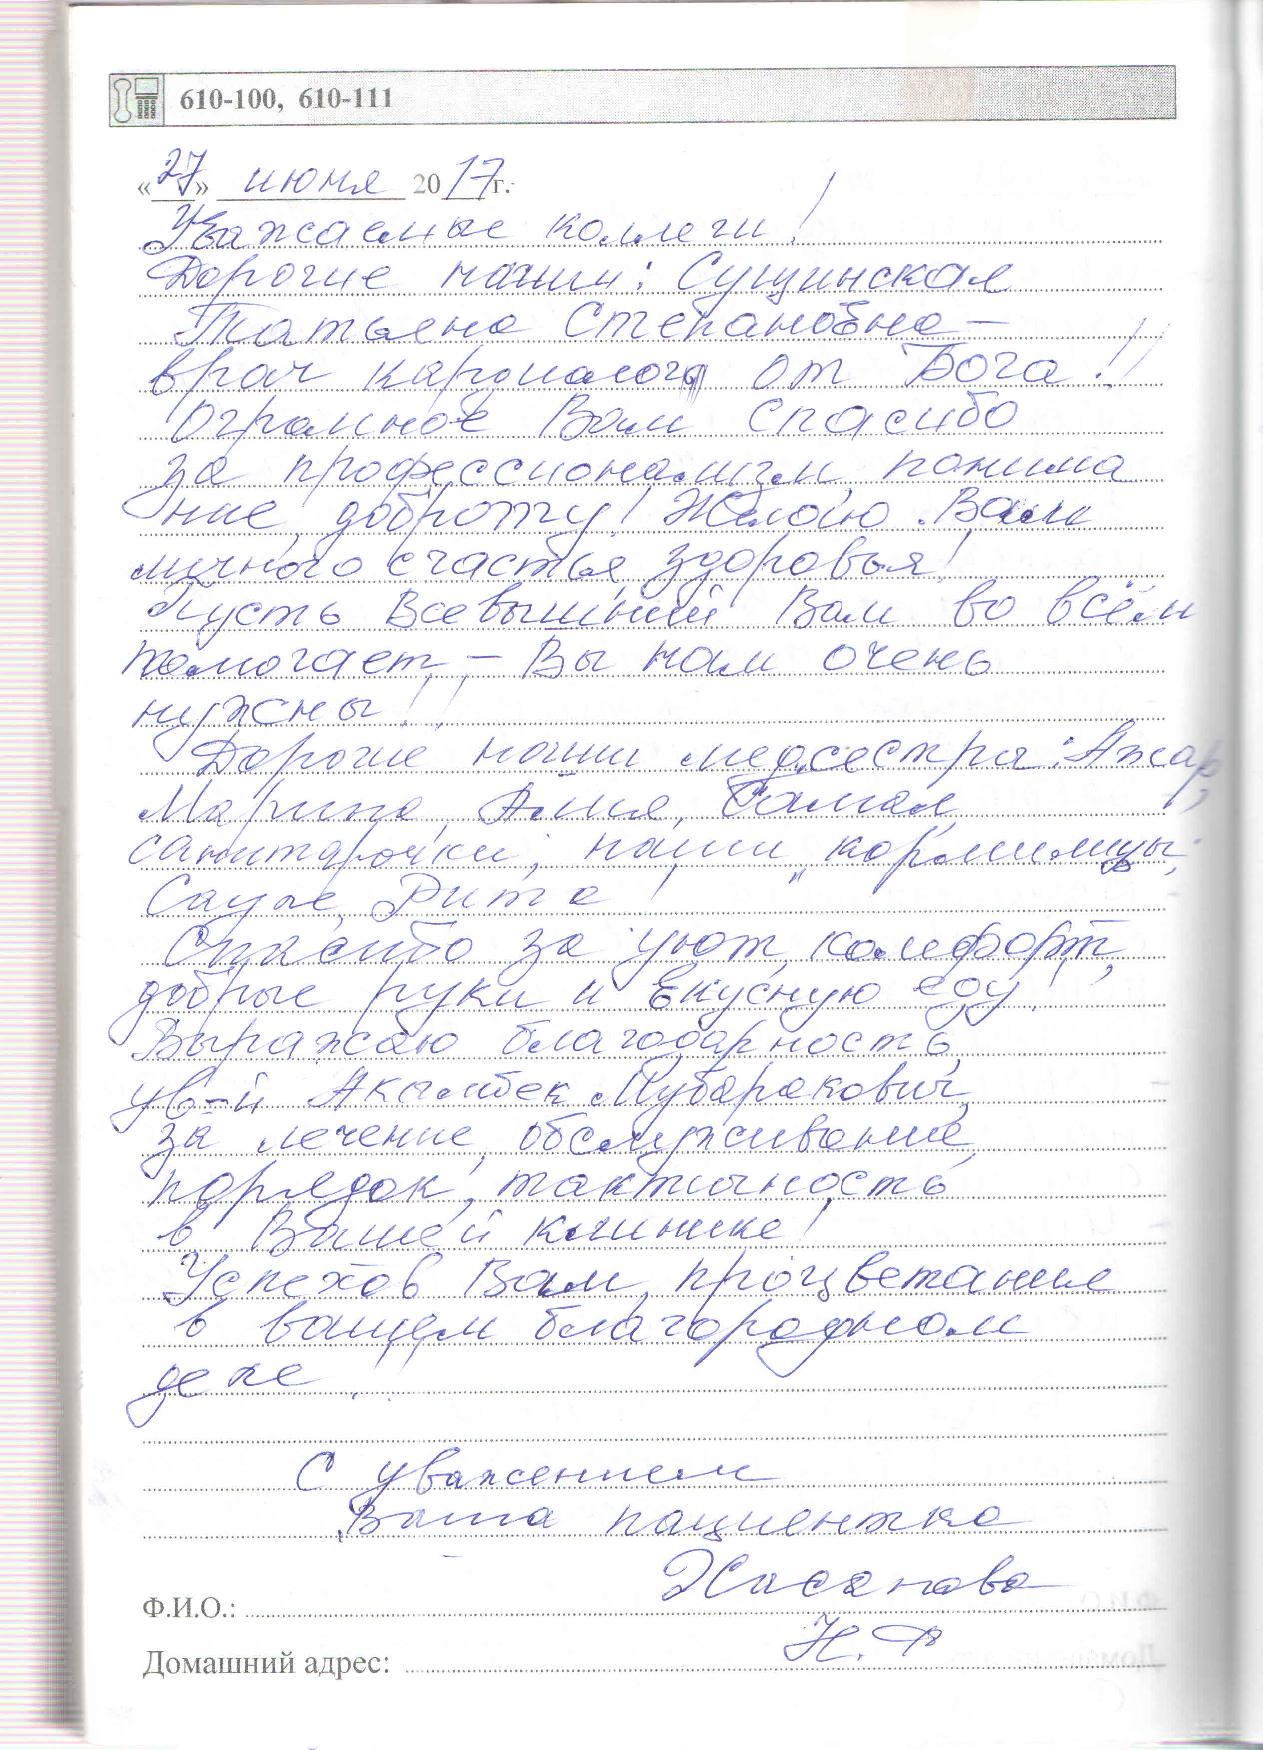 610-100, 610-111
«27» июня 2017 г.
Уважаемые коллеги!
Дорогие наши: Сущинская
Татьяна Степановна –
врач кардиолог от Бога!!
Огромное Вам спасибо
за профессионализм, понима
ние, доброту! Желаю Вам
личного счастья, здоровья!
Пусть Всевышний Вам во всём
помогает, – Вы нам очень
нужны!!
Дорогие наши медсестра: Ажар,
Марина, Асия, Самал,
санитарочки, наши „кормилицы"
Сауле, Рита!
Спасибо за уют, комфорт,
добрые руки и вкусную еду!
Выражаю благодарность,
ув-й Акылбек Мубаракович,
за лечение, обслуживание,
порядок, тактичность
в Вашей клинике!
Успехов Вам, процветание
в вашем благородном
деле.
С уважением
Ваша пациентка
Хасанова
Н.
Ф.И.О.:
Домашний адрес: